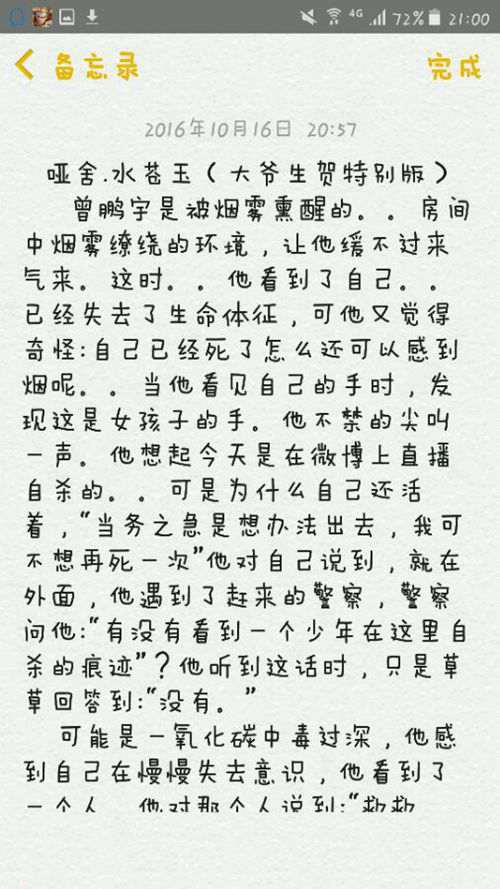 4G 72% 21:00
备忘录 完成
2016年10月16日 20:57
哑舍.水苍玉（大爷生贺特别版）
曾鹏宇是被烟雾熏醒的。。房间
中烟雾缭绕的环境，让他缓不过来
气来。这时。。他看到了自己。。
已经失去了生命体征，可他又觉得
奇怪:自己已经死了怎么还可以感到
烟呢。。当他看见自己的手时，发
现这是女孩子的手。他不禁的尖叫
一声。他想起今天是在微博上直播
自杀的。。可是为什么自己还活
着，“当务之急是想办法出去，我可
不想再死一次”他对自己说到，就在
外面，他遇到了赶来的警察，警察
问他:“有没有看到一个少年在这里自
杀的痕迹”？他听到这话时，只是草
草回答到:“没有。”
可能是一氧化碳中毒过深，他感
到自己在慢慢失去意识，他看到了
一个人，他对那个人说到:“救救